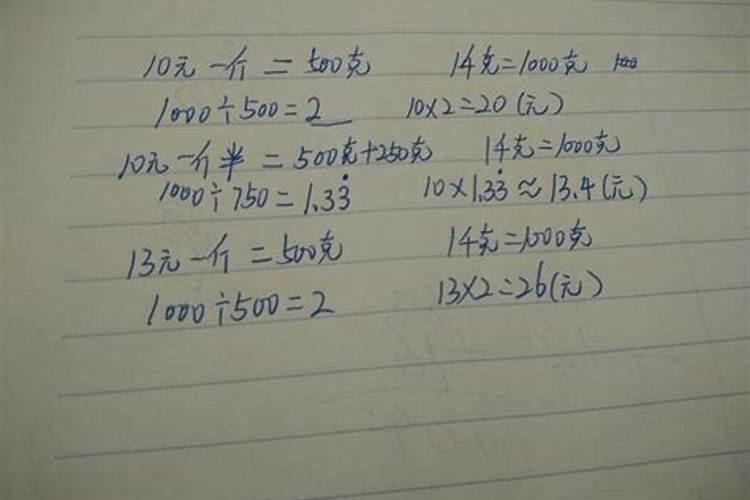 10元一斤=500克 14克=1000克
1000÷500=2 10×2=20(元)
10元一斤半=500克+250克 14克=1000克
1000÷750=1.33̇ 10×1.33̇≈13.4(元)
13元一斤=500克 14克=1000克
1000÷500=2 13×2=26(元)